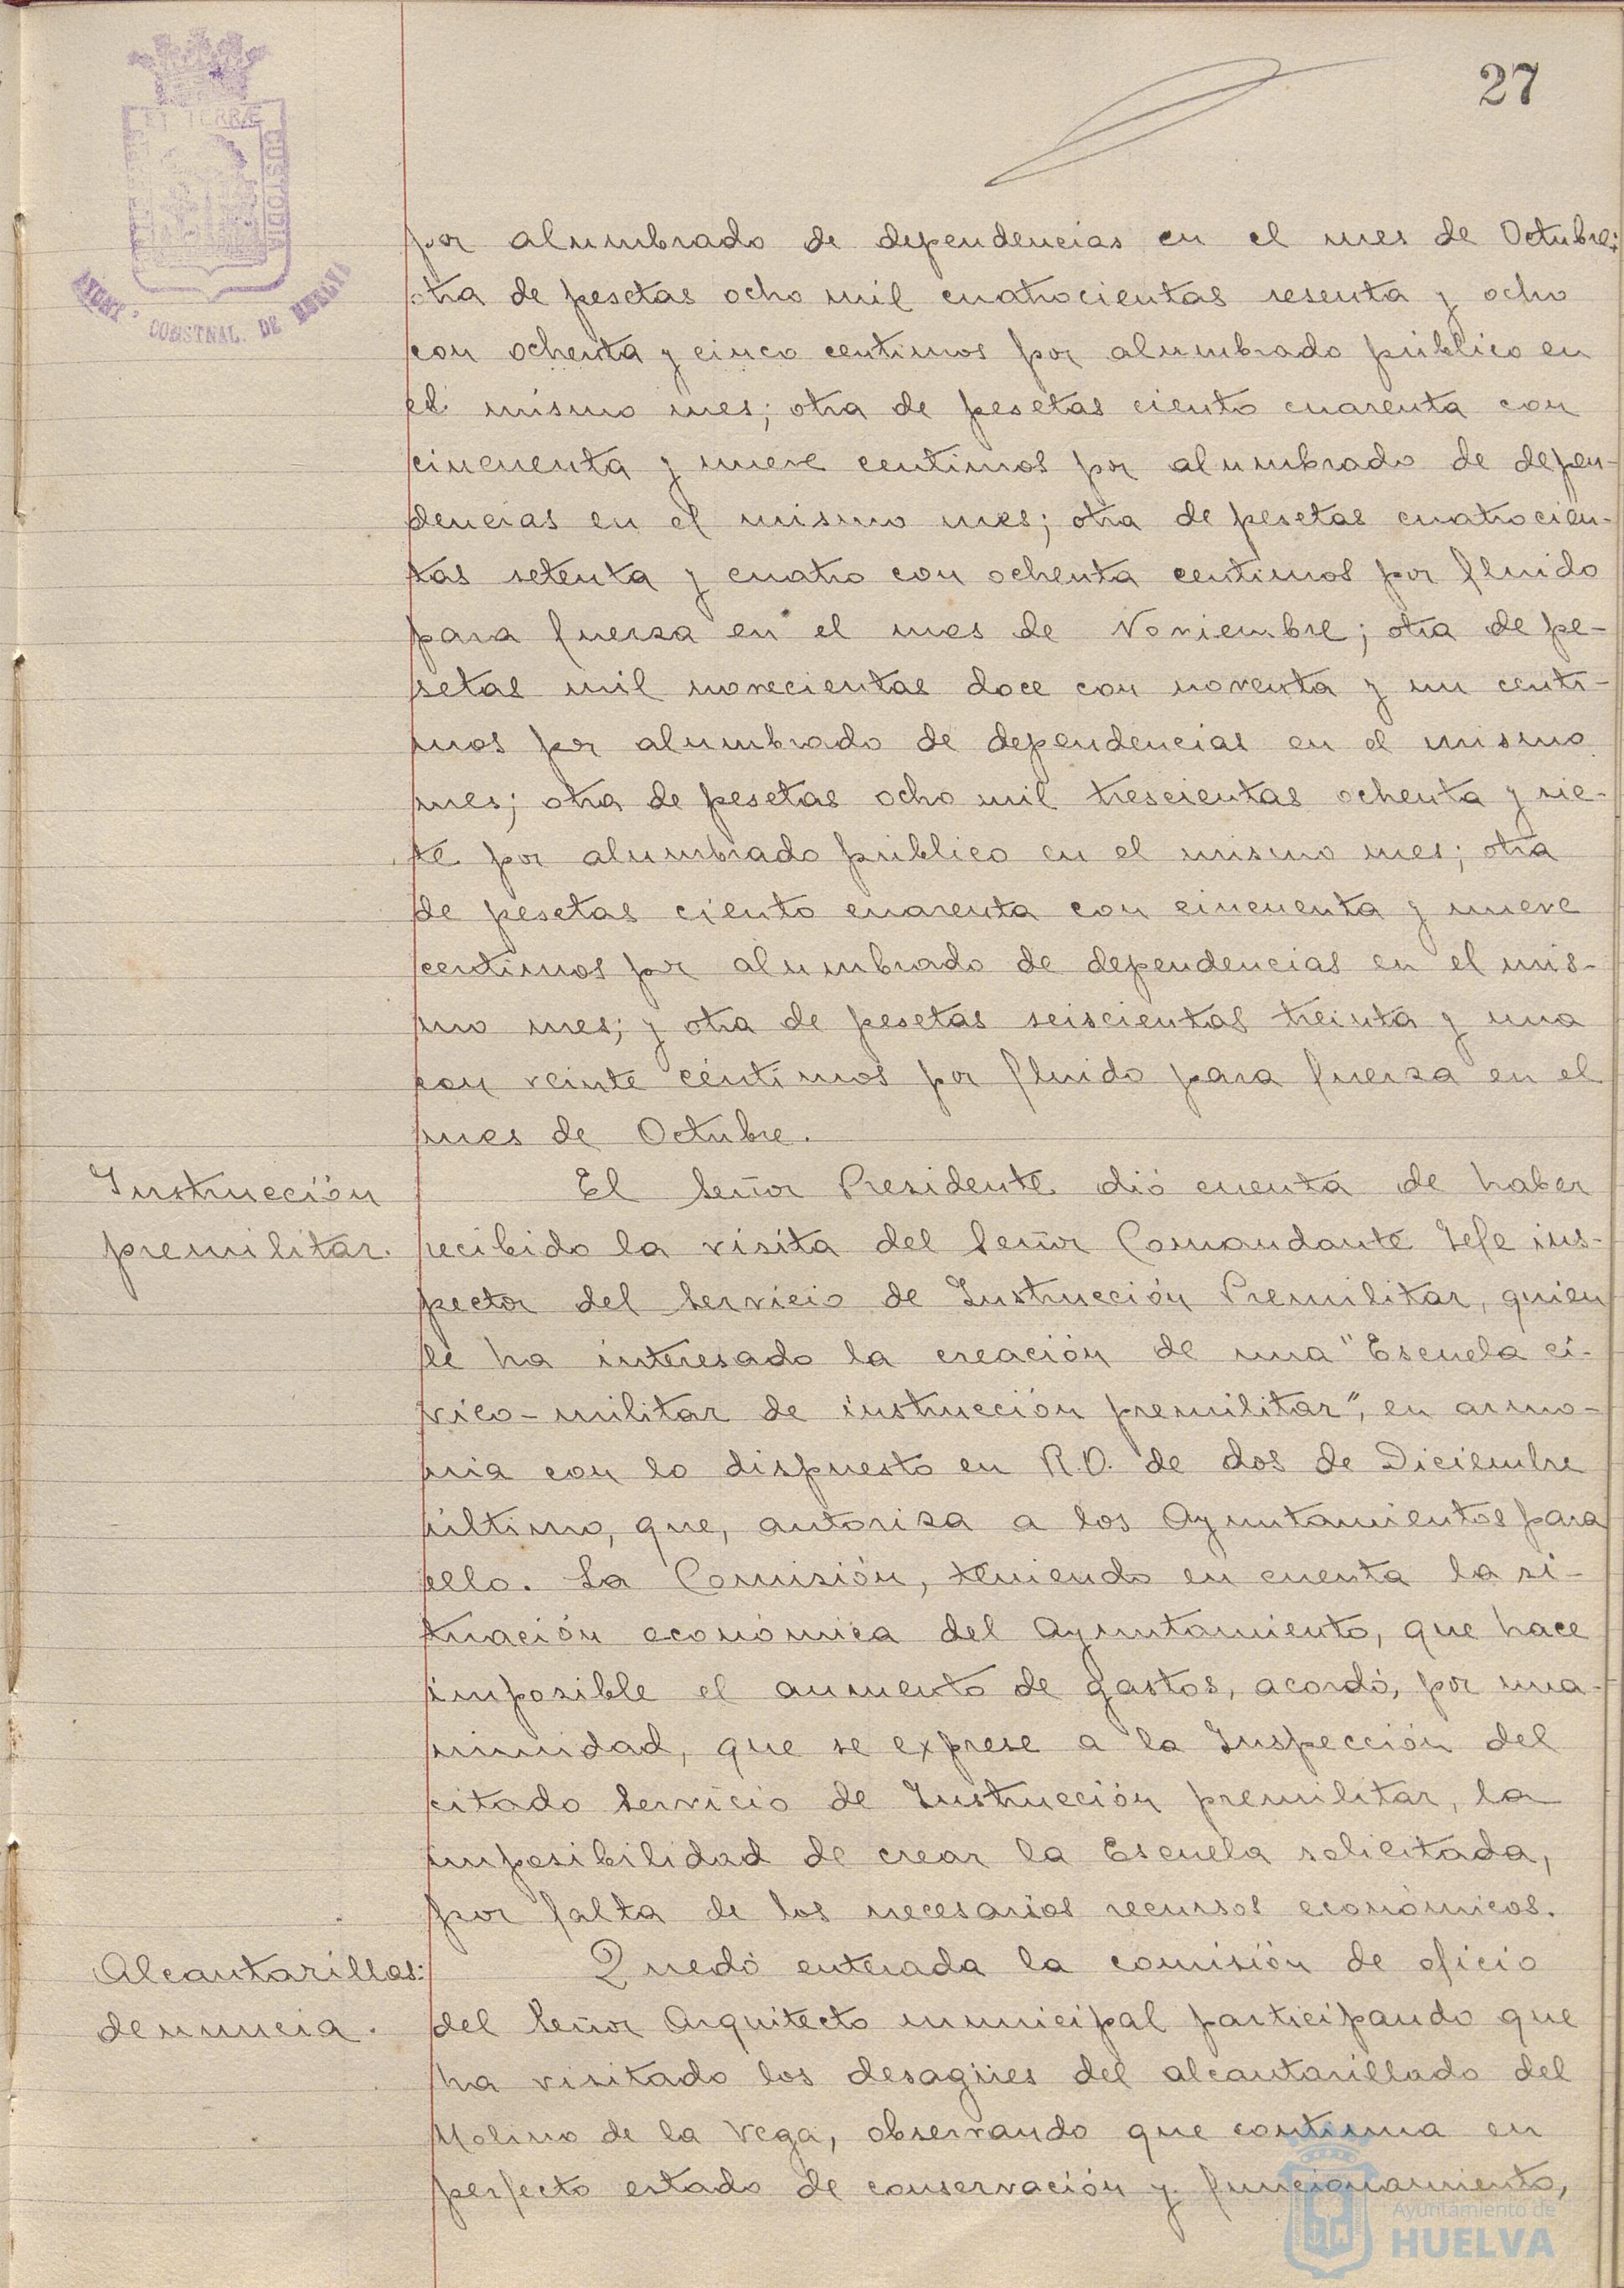 27
ET TERRÆ
CUSTODIA
AYONT. CONSTNAL. DE HUELVA
por alumbrado de dependencias en el mes de Octubre;
otra de pesetas ocho mil cuatrocientas sesenta y ocho
con ochenta y cinco centimos por alumbrado público en
el mismo mes; otra de pesetas ciento cuarenta con
cincuenta y nueve centimos por alumbrado de depen-
dencias en el mismo mes; otra de pesetas cuatrocien-
tas setenta y cuatro con ochenta centimos por fluido
para fuerza en el mes de Noviembre; otra de pe-
setas mil novecientas doce con noventa y un centi-
mos por alumbrado de dependencias en el mismo
mes; otra de pesetas ocho mil trescientas ochenta y sie-
te por alumbrado público en el mismo mes; otra
de pesetas ciento cuarenta con cincuenta y nueve
centimos por alumbrado de dependencias en el mis-
mo mes; y otra de pesetas seiscientas treinta y una
con veinte céntimos por fluido para fuerza en el
mes de Octubre.
Instrucción
premilitar.
El Señor Presidente dió cuenta de haber
recibido la visita del Señor Comandante Jefe ins-
pector del Servicio de Instrucción Premilitar, quien
le ha interesado la creación de una "Escuela cí-
vico-militar de instrucción premilitar", en armo-
nia con lo dispuesto en R.O. de dos de Diciembre
último, que, autoriza a los Ayuntamientos para
ello. La Comisión, teniendo en cuenta la si-
tuación económica del Ayuntamiento, que hace
imposible el aumento de gastos, acordó, por una-
nimidad, que se exprese a la Inspección del
citado Servicio de Instrucción premilitar, la
imposibilidad de crear la Escuela solicitada,
por falta de los necesarios recursos económicos.
Alcantarillas:
denuncia.
Quedó enterada la comisión de oficio
del Señor Arquitecto municipal participando que
ha visitado los desagües del alcantarillado del
Molino de la Vega, observando que continua en
perfecto estado de conservación y funcionamiento,
Ayuntamiento de
HUELVA